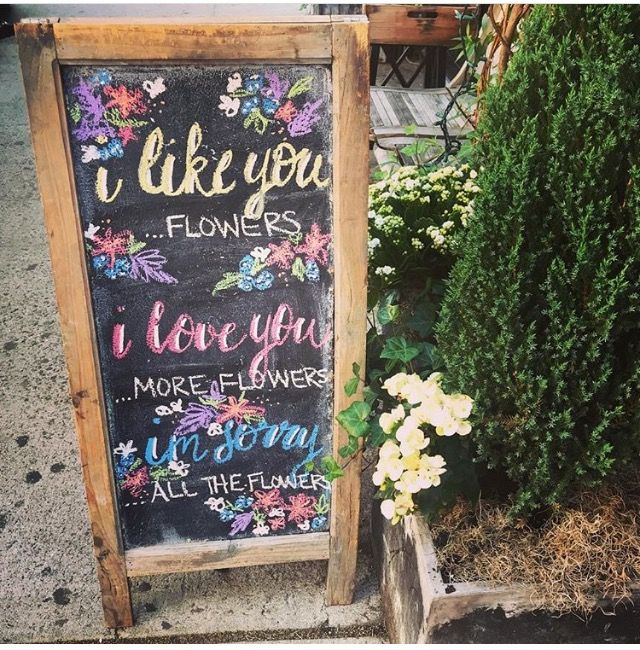 i like you
...FLOWERS
i love you
...MORE FLOWERS
im sorry
...ALL THE FLOWERS